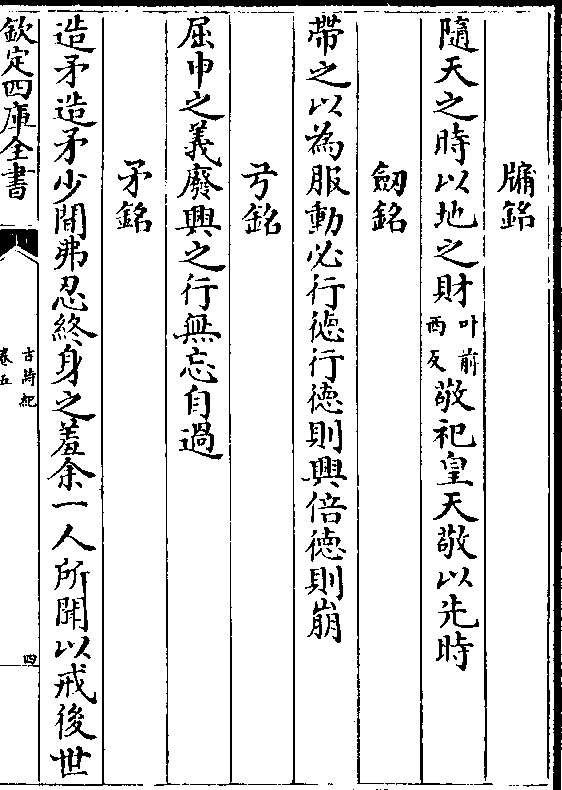 牖銘
隨天之時以地之財叶前西反敬祀皇天敬以先時
劒銘
帶之以為服動必行徳行徳則興倍徳則崩
弓銘
屈申之義廢興之行無忘自過
矛銘
造矛造矛少間弗忍終身之羞余一人所聞以戒後世
欽定四庫全書
古詩紀
卷五
四